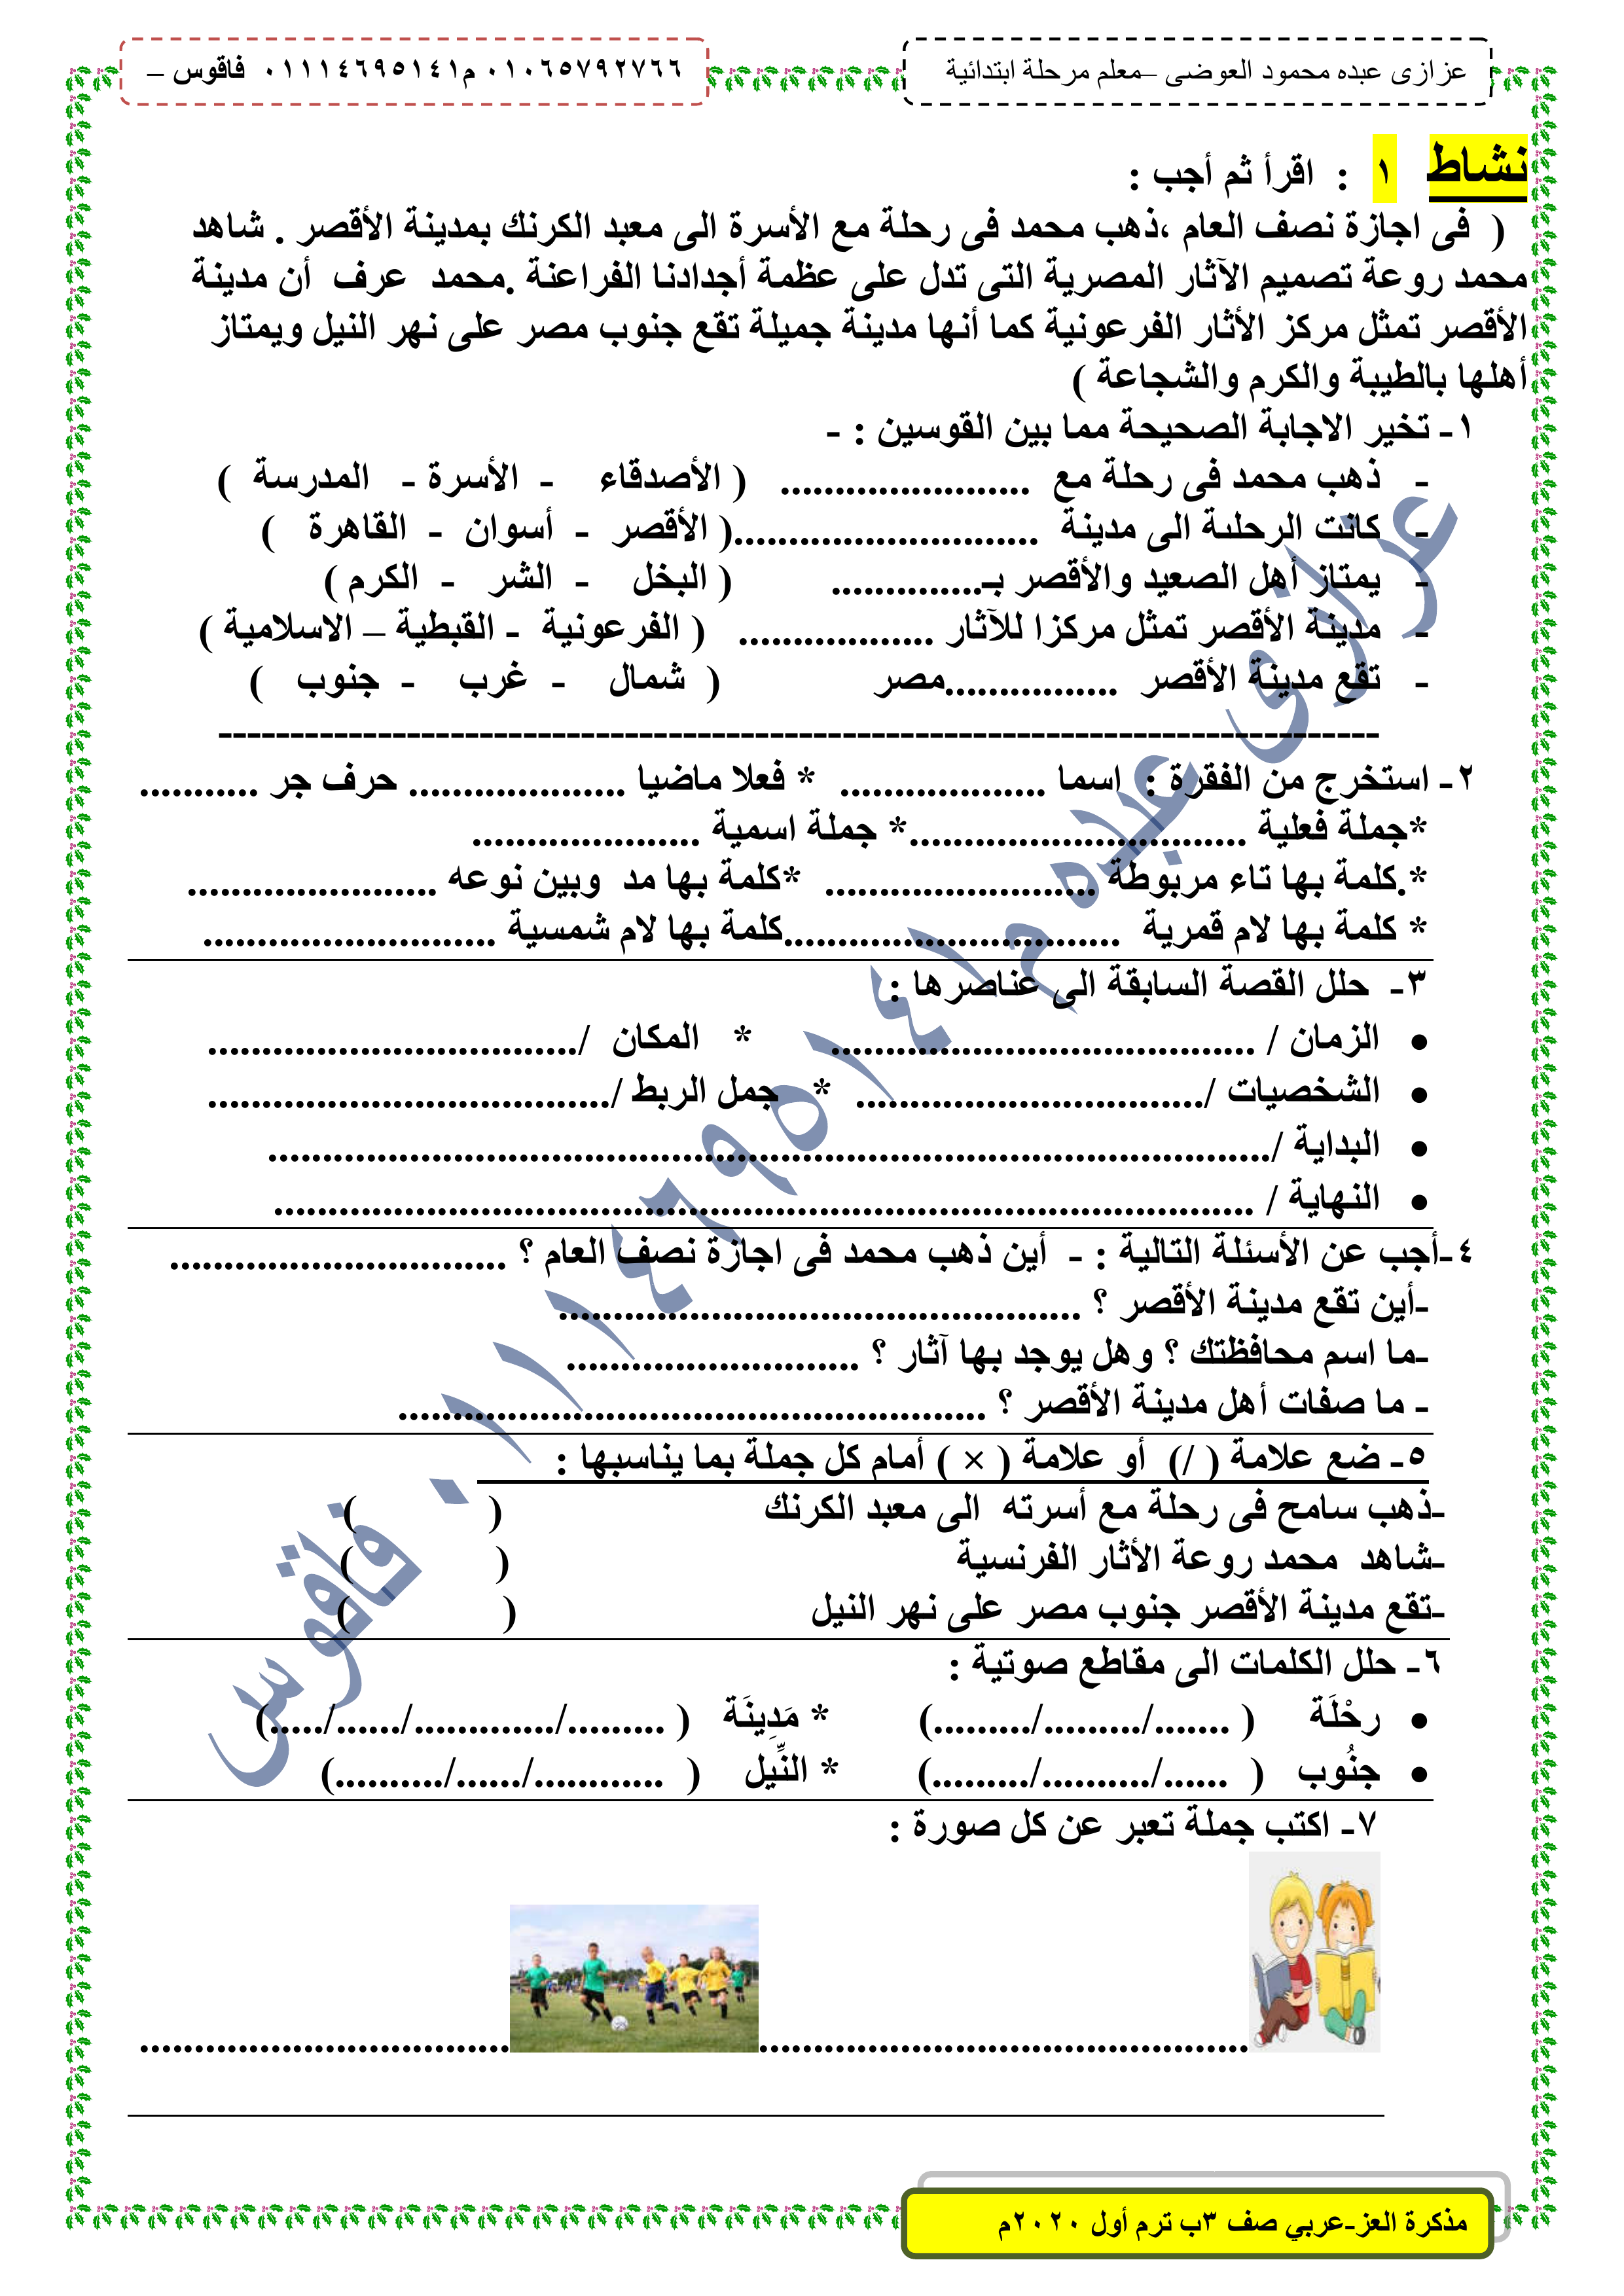 عزازى عبده محمود العوضى –معلم مرحلة ابتدائية
٠١٠٦٥٧٩٢٧٦٦ م٠١١١٤٦٩٥١٤١ فاقوس –
نشاط ١ : اقرأ ثم أجب :
( فى اجازة نصف العام ،ذهب محمد فى رحلة مع الأسرة الى معبد الكرنك بمدينة الأقصر . شاهد
محمد روعة تصميم الآثار المصرية التى تدل على عظمة أجدادنا الفراعنة .محمد عرف أن مدينة
الأقصر تمثل مركز الأثار الفرعونية كما أنها مدينة جميلة تقع جنوب مصر على نهر النيل ويمتاز
أهلها بالطيبة والكرم والشجاعة )
١- تخير الاجابة الصحيحة مما بين القوسين : -
- ذهب محمد فى رحلة مع ....................... ( الأصدقاء - الأسرة - المدرسة )
- كانت الرحلىة الى مدينة ............................( الأقصر - أسوان - القاهرة )
- يمتاز أهل الصعيد والأقصر بـ.............. ( البخل - الشر - الكرم )
- مدينة الأقصر تمثل مركزا للآثار .................. ( الفرعونية - القبطية – الاسلامية )
- تقع مدينة الأقصر ................مصر ( شمال - غرب - جنوب )
--------------------------------------------------------------------------------
٢- استخرج من الفقرة : اسما ................... * فعلا ماضيا .................... حرف جر ...........
*جملة فعلية ...............................* جملة اسمية .....................
*.كلمة بها تاء مربوطة ......................... *كلمة بها مد وبين نوعه .......................
* كلمة بها لام قمرية ...............................كلمة بها لام شمسية ...........................
٣- حلل القصة السابقة الى عناصرها :
• الزمان / ....................................... * المكان /..................................
• الشخصيات /................................ * جمل الربط /.....................................
• البداية /............................................................................................
• النهاية / ..........................................................................................
٤-أجب عن الأسئلة التالية : - أين ذهب محمد فى اجازة نصف العام ؟ ...............................
-أين تقع مدينة الأقصر ؟ ................................................
-ما اسم محافظتك ؟ وهل يوجد بها آثار ؟ ...........................
- ما صفات أهل مدينة الأقصر ؟ ......................................................
٥- ضع علامة ( /) أو علامة ( × ) أمام كل جملة بما يناسبها :
-ذهب سامح فى رحلة مع أسرته الى معبد الكرنك ( )
-شاهد محمد روعة الأثار الفرنسية ( )
-تقع مدينة الأقصر جنوب مصر على نهر النيل ( )
٦- حلل الكلمات الى مقاطع صوتية :
• رحْلَة ( ......./........./.........) * مَدِينَة ( ........./............./....../.....)
• جنُوب ( ....../........../.........) * النِّيل ( ............/....../..........)
٧- اكتب جملة تعبر عن كل صورة :
............................................. ..................................
عزازى عبده م٠١١١٤٦٩٥١٤١ فاقوس
مذكرة العز-عربي صف ٣ب ترم أول ٢٠٢٠م